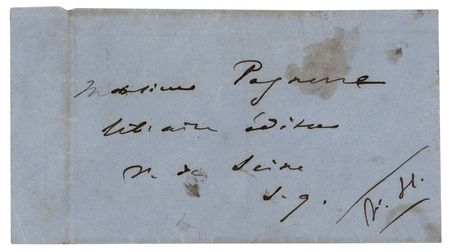 Monsieur Pagnerre
libraire éditeur
r. de Seine
s. g.
V. H.